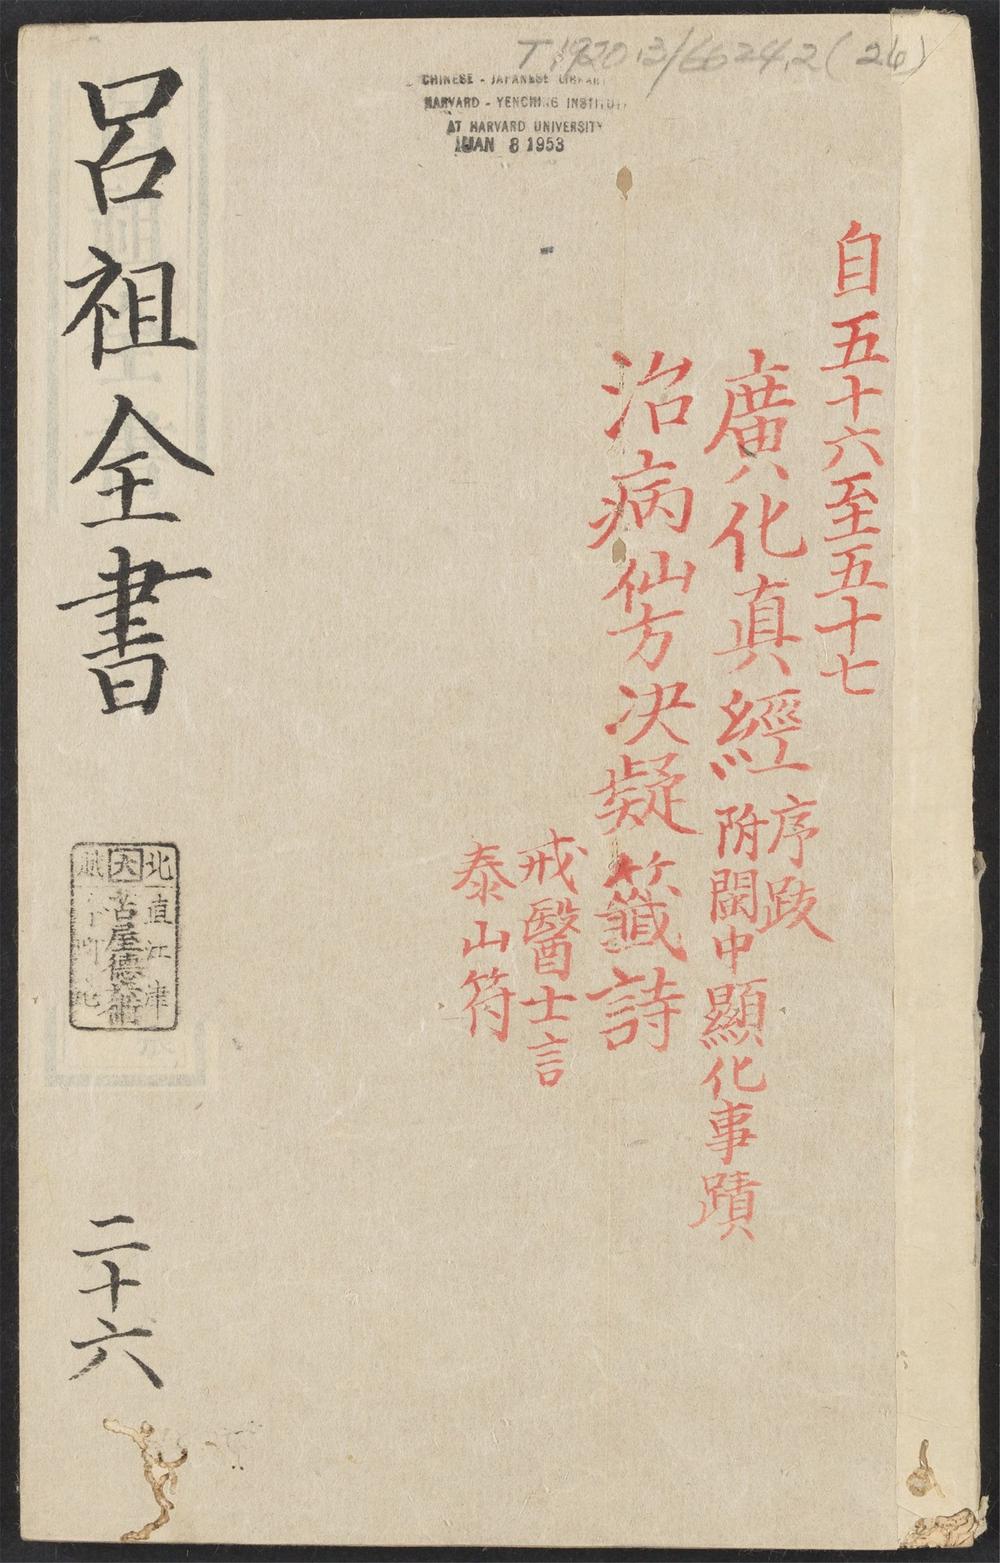 T 1920.3/6624.2 (26)
CHINESE - JAPANESE LIBRARY
HARVARD - YENCHING INSTITUTE
AT HARVARD UNIVERSITY
JAN 8 1953
自五十六至五十七
廣化真經
序跋
附閩中顯化事蹟
治病仙方决凝籤詩
戒醫士言
泰山符
呂祖全書
北直江津
大
古屋德
二十六